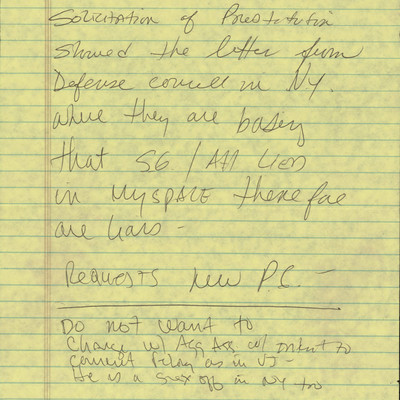 Solicitation of Prostitution
showed the letter from
Defense councel in NY.
where they are basing
that SG / AH Lied
in MYSPACE therefore
are liars -
REQUESTS new P.C. -
Do not want to
Charge w/ Agg Ass w/ intent to
commit felony as in VJ -
He is a sex off in NY too